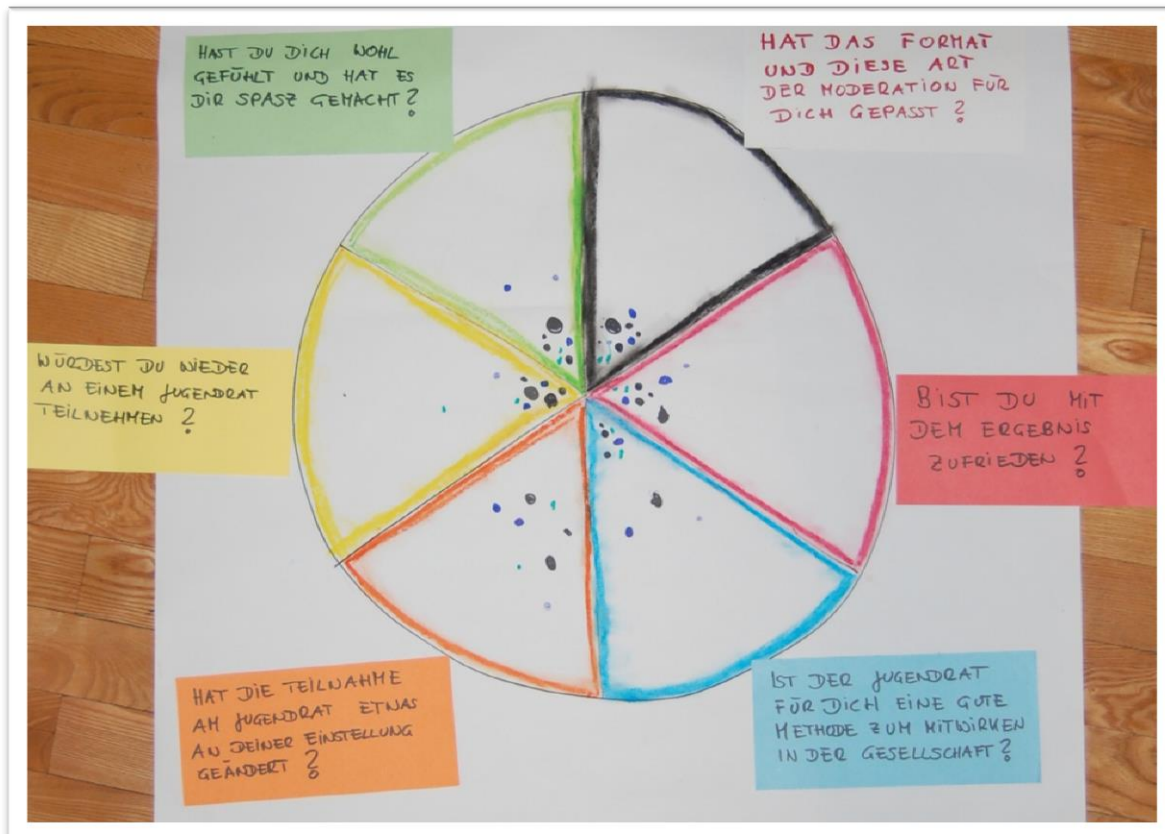 HAST DU DICH WOHL
GEFÜHLT UND HAT ES
DIR SPASZ GEMACHT?
HAT DAS FORMAT
UND DIESE ART
DER MODERATION FÜR
DICH GEPASST?
WÜRDEST DU WIEDER
AN EINEM JUGENDRAT
TEILNEHMEN?
BIST DU MIT
DEM ERGEBNIS
ZUFRIEDEN?
HAT DIE TEILNAHME
AM JUGENDRAT ETWAS
AN DEINER EINSTELLUNG
GEÄNDERT?
IST DER JUGENDRAT
FÜR DICH EINE GUTE
METHODE ZUM MITWIRKEN
IN DER GESELLSCHAFT?